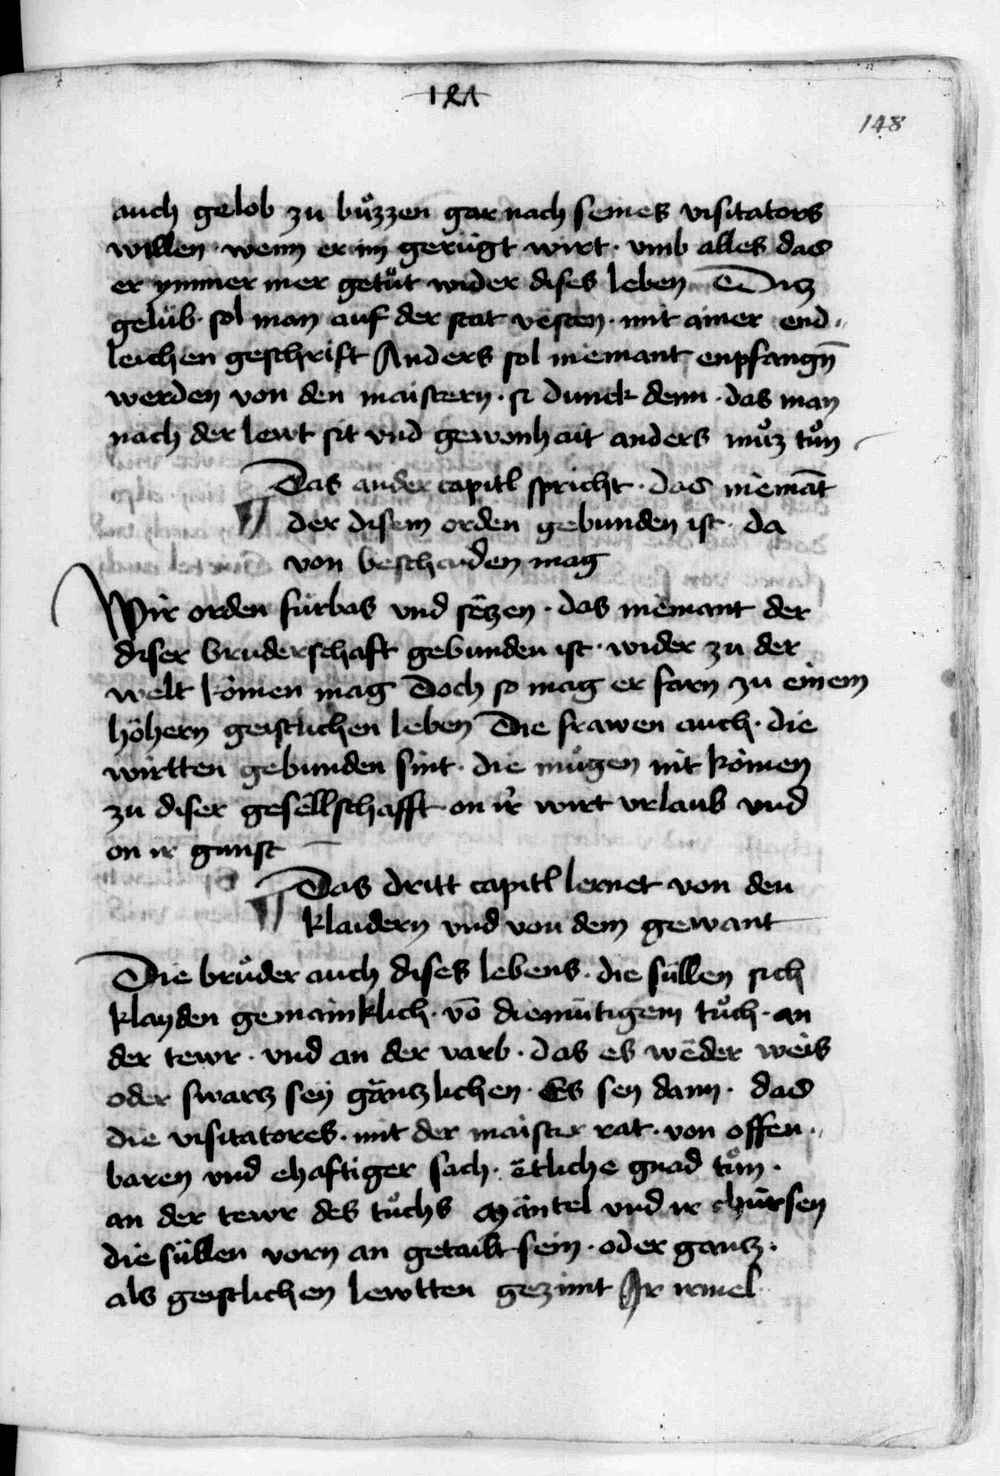 148
auch gelob zu bu̇zzen gar nach seines visitators
willen · wenn er im gerügt wirt · vmb alles das
er ymmer mer getu̇t wider dises leben Ditz
gelüb · sol man auf der stat vesten · mit ainer end„
leichen geschrift Anders sol niemant enpfangn̄
werden von den maistern · si dunck denn · das man
nach der lewt sit vnd gewonhait anders mu̇z tu̇n
Das ander capitl spricht · das niemāt
der disem orden gebunden ist · da
von beschaiden mag
Wir orden fürbas vnd setzen · das niemant der
diser bruderschaft gebunden ist · wider zu der
welt kömen mag Doch so mag er farn zu einem
höhern geistlichen leben Die frawen auch · die
wirtten gebunden sint · die mügen nit kömen
zu diser gesellschafft on ir wirt vrlaub vnd
on ir gunst
Das dritt capitl lernet von den
klaidern vnd von dem gewant
Die bru̇der auch dises lebens · die süllen sich
klayden gemainklich · vō diemütigem tu̇ch · an
der tewr · vnd an der varb · das es weder weis
oder swarz sey gäntzlichen · Es sey dann · das
die visitatores · mit der maister rat · von offen„
baren vnd ehaftiger sach · etliche gnad tu̇n ·
an der tewr des tu̇chs Mäntel vnd ir chürsen
die süllen vorn an getailt sein · oder gantz ·
als geistlichen lewtten gezimt Ir irmel